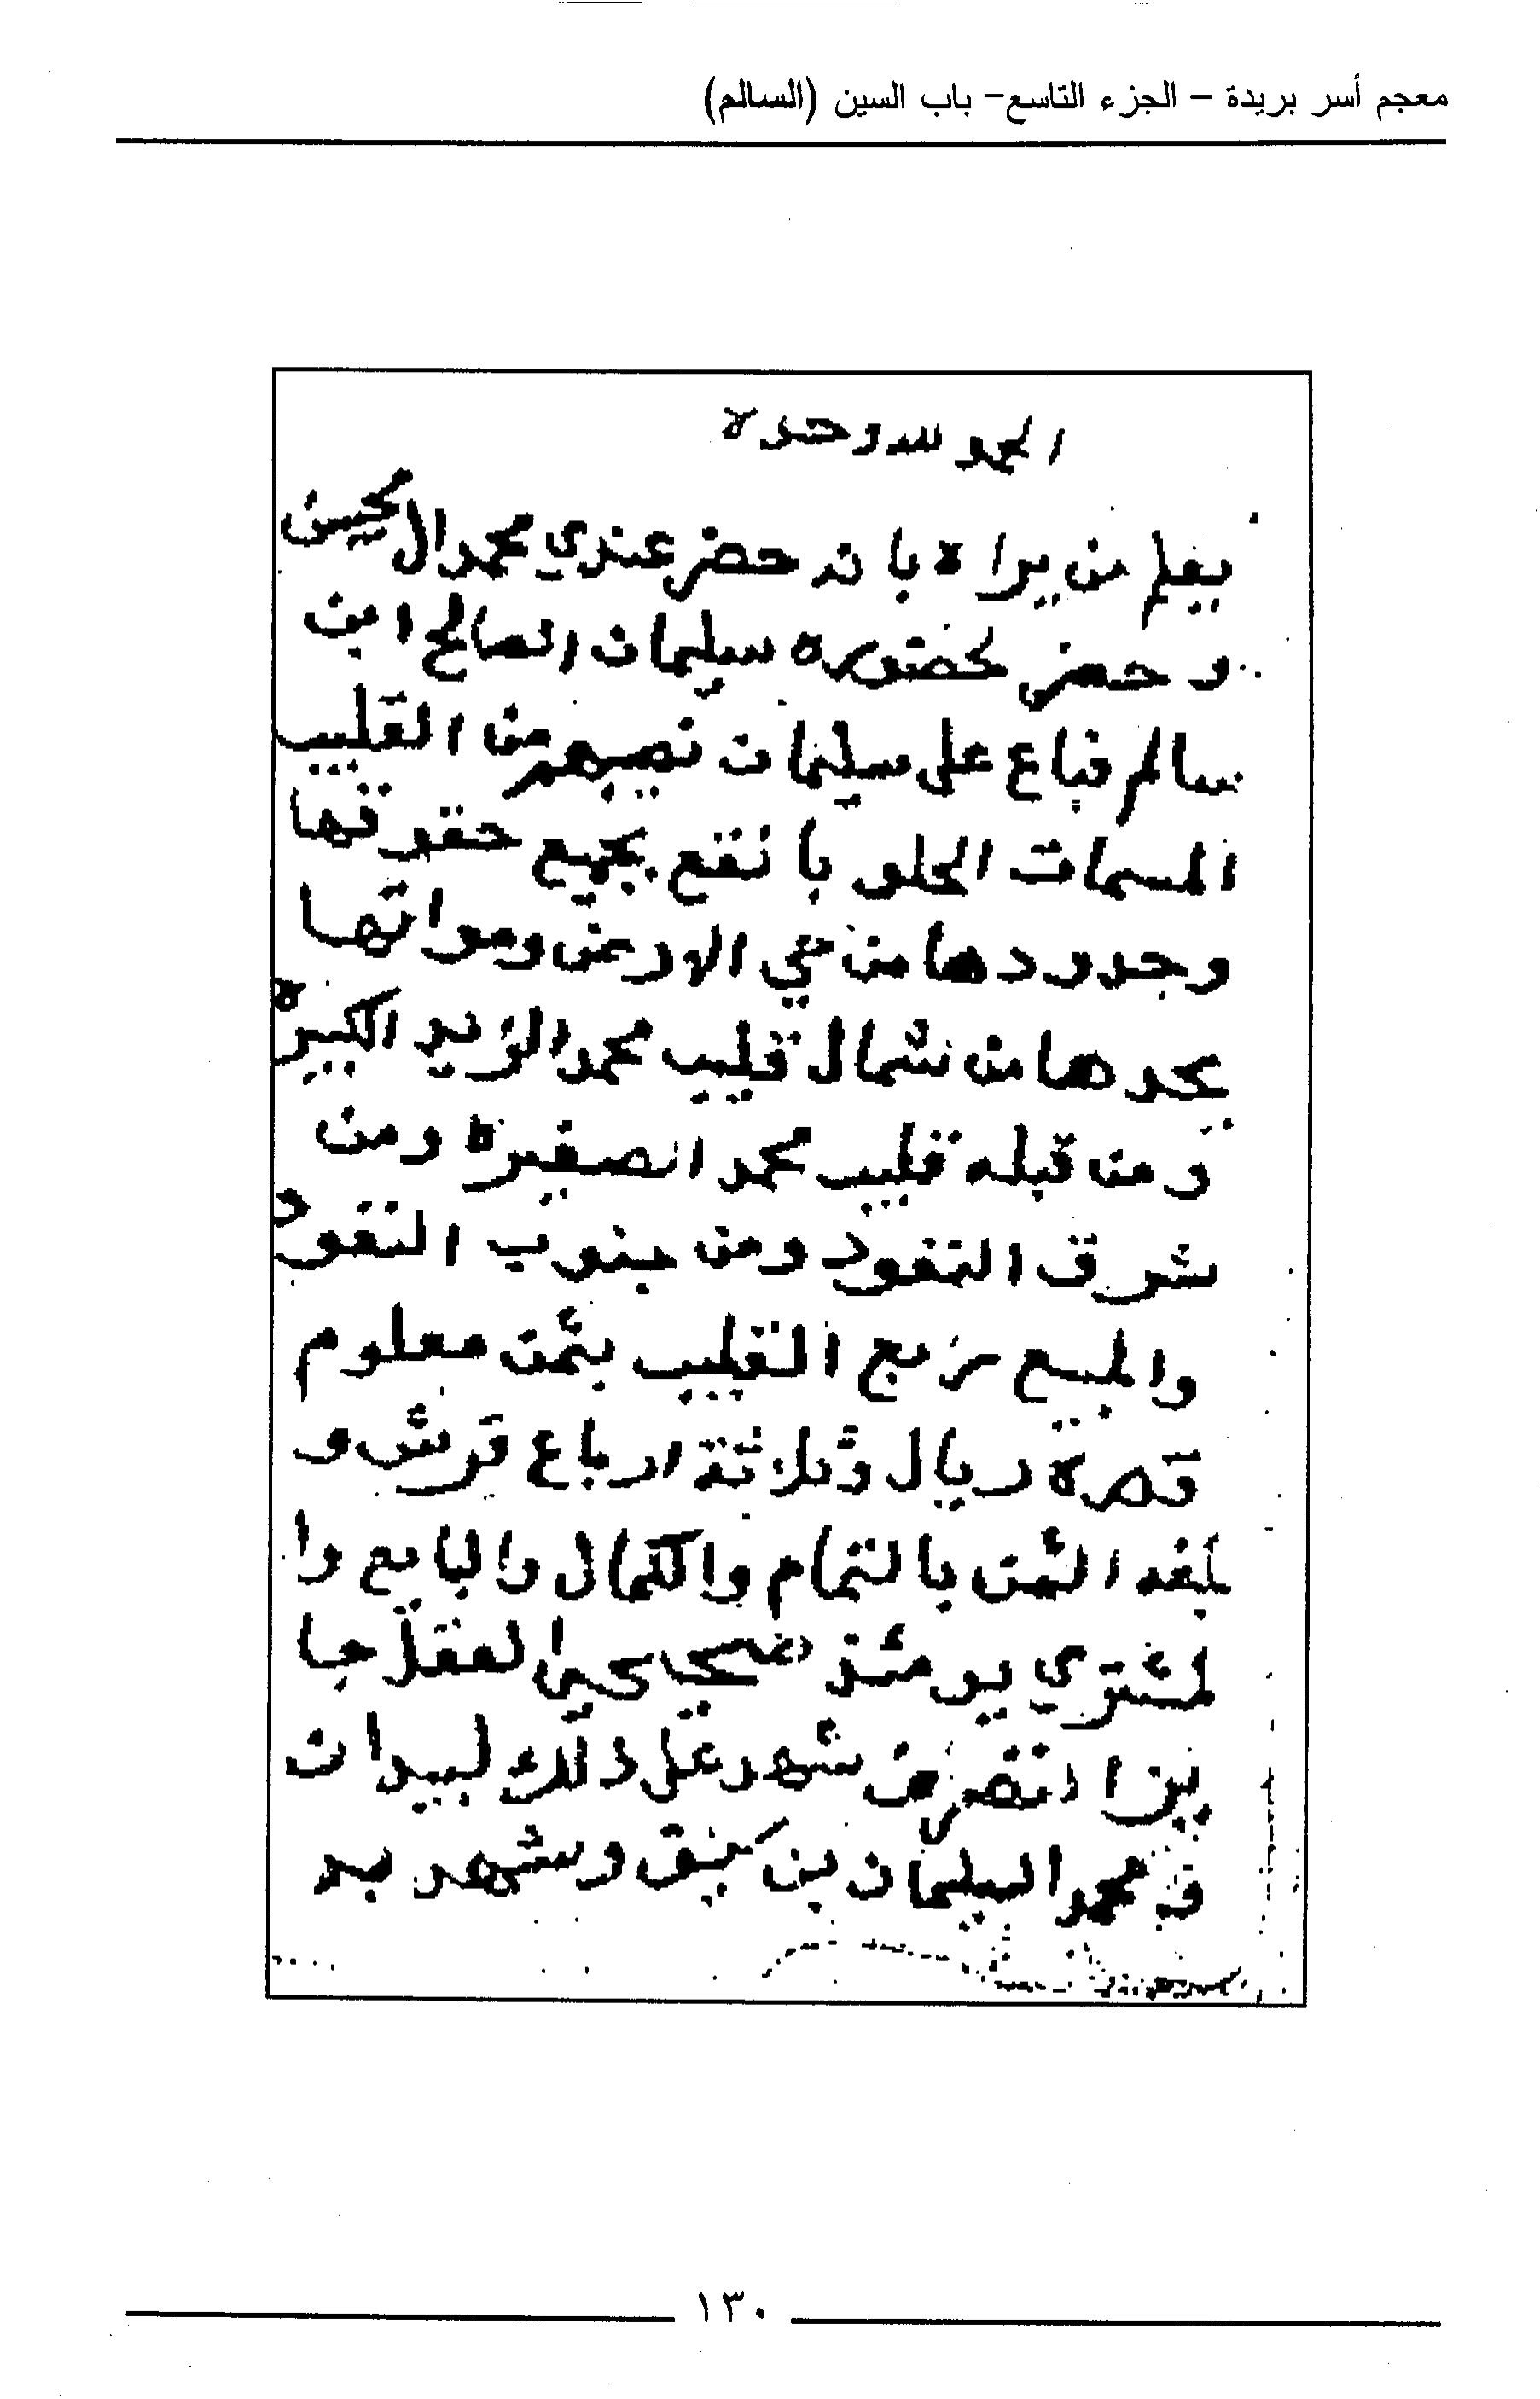 معجم أسر بريدة – الجزء التاسع– باب السين (السالم)
الحمد لله وحده
يعلم من يراه بانه حضر عندي محمد ال محيسن
و حضر لحضوره سليمان الصالح ابن
سالم فباع على سليمان نصيبهم من القليب
المسمات الحلو بالنقع بجميع حقوقها
وحدودها من حي الارض ومواتها
يحدها من شمال قليب محمد الزيد الكبيره
ومن قبله قليب محمد الصغيره ومن
شرق النفود ومن جنوب النفود
والمبيع ربع القليب بثمن معلوم
قدره ريال وثلاثة ارباع قرش و
بلغه الثمن بالتمام والكمال والبايع وا
لمشتري يومئذ صحيحين العقل جا
يزا التصرف شهد على ذلك لبيدان
محمد السليمان بن وشهد به
١٣٠